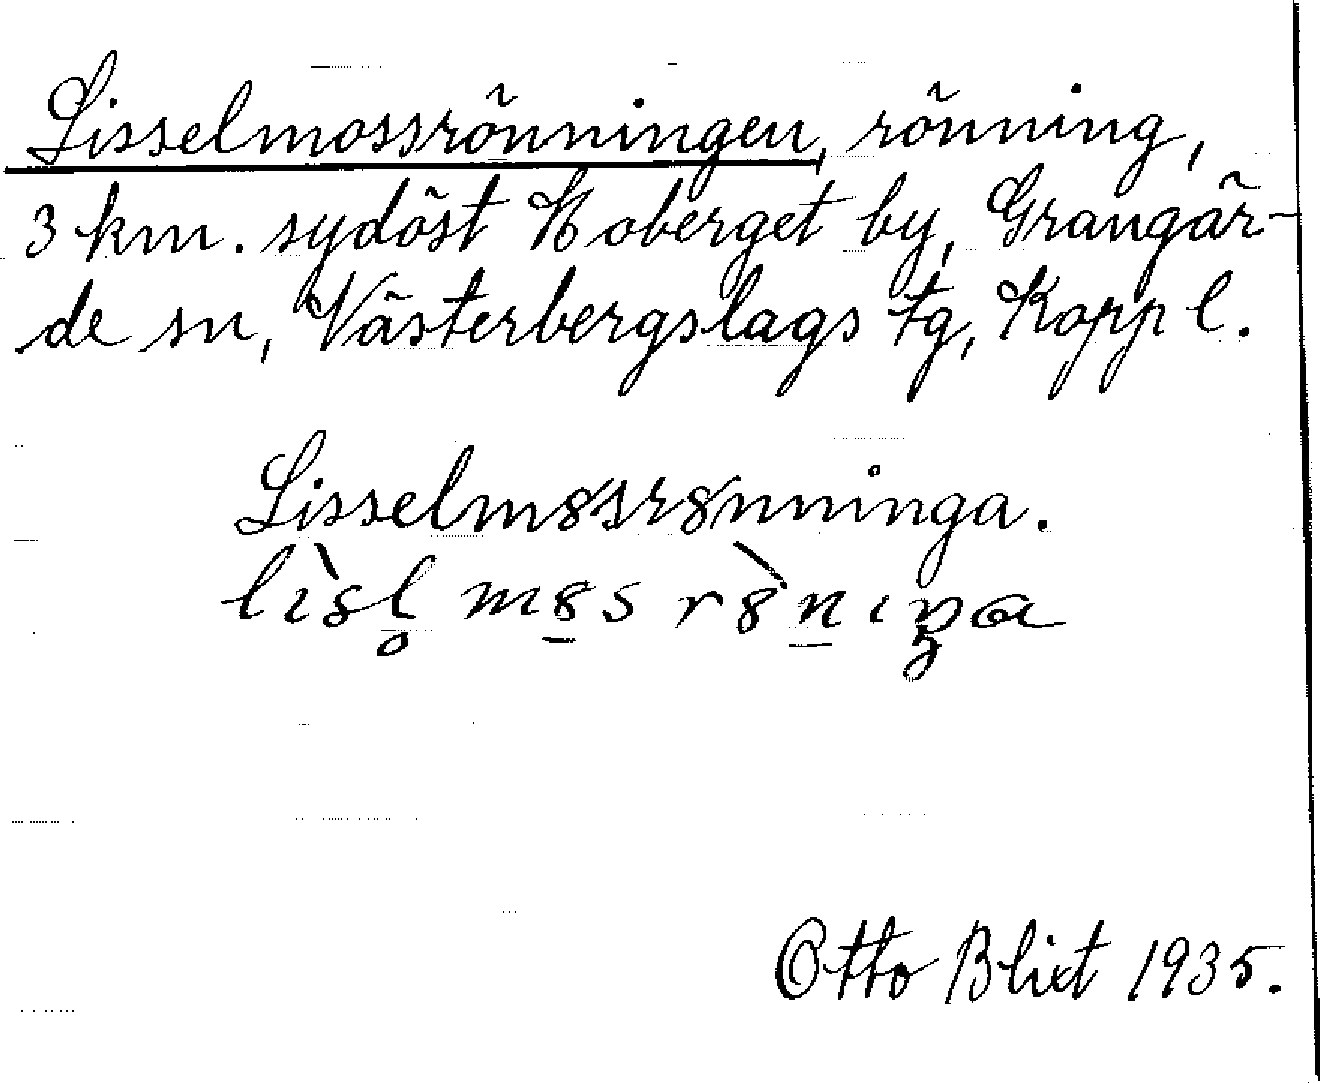 Lisselmossrönningen, rönning,
3 km. sydöst Hoberget by, Grangär-
de sn, Västerbergslags tg, Kopp l.
Lisselm8sr8nninga.
Otto Blixt 1935.